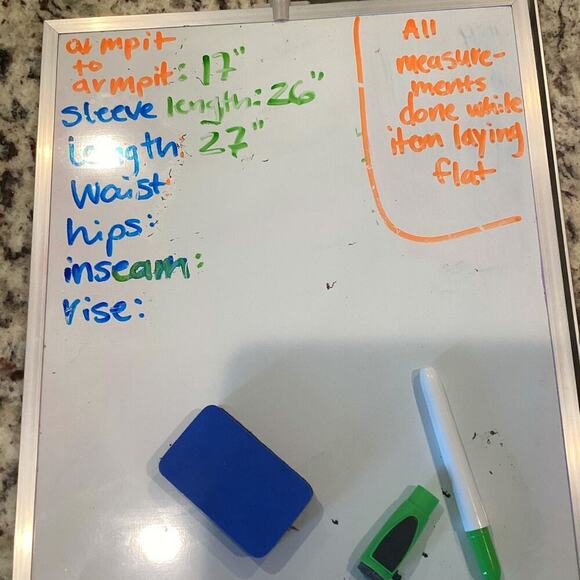 armpit
to
armpit: 17"
sleeve length: 26"
Length: 27"
Waist:
hips:
inseam:
rise:
All
measure-
ments
done while
item laying
flat